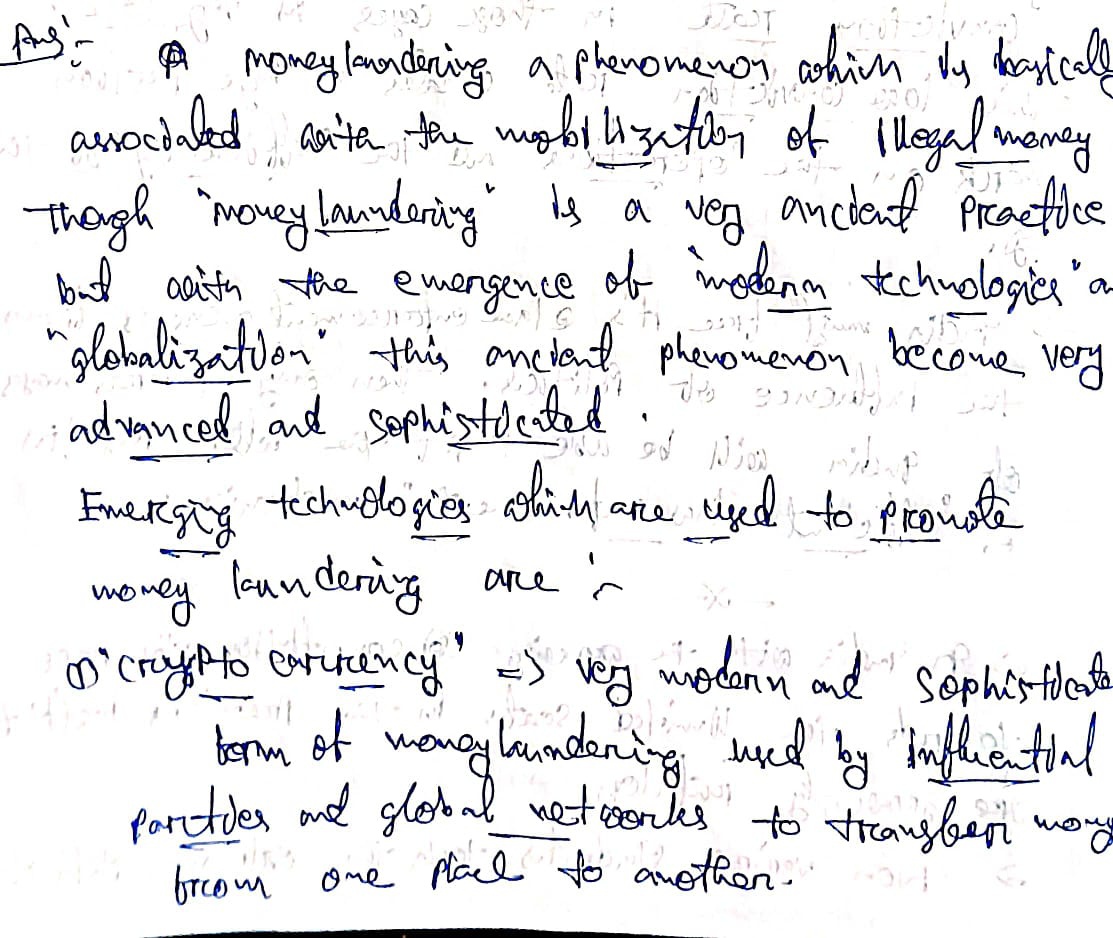 Ans:-  money laundering a phenomenon which is basicall
associated with the mobilization of illegal money
Though "money laundering" is a very ancient practice
but with the emergence of "modern technologies" a
"globalization" this ancient phenomenon become very
advanced and sophisticated.
Emerging technologies which are used to promote
money laundering are :-
① "Crypto currency" => very modern and sophisticate
form of money laundering used by influential
parties and global networks to transfer mony
from one place to another.